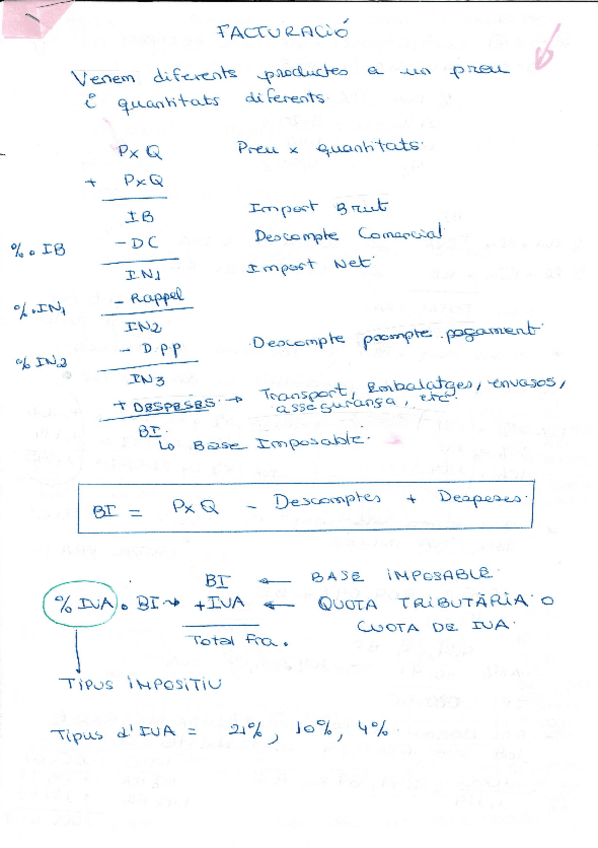 FACTURACIÓ
Venem diferents productes a un preu
i quantitats diferents.
PxQ Preu x quantitats.
+ PxQ
IB Import Brut
%. IB - DC Descompte Comercial
IN1 Import Net.
%.IN1 - Rappel
IN2
% IN2 - D.P.P Descompte prompte pagament.
IN3
+ DESPESES. → Transport, Embalatges, envasos,
assegurança, etc.
BI.
↳ Base Imposable.
BI = PxQ - Descomptes + Despeses.
BI ← BASE IMPOSABLE.
% IVA. BI → + IVA ← QUOTA TRIBUTÀRIA O
CUOTA DE IVA.
Total fra.
TIPUS IMPOSITIU
Tipus d'IVA = 21%, 10%, 4%.